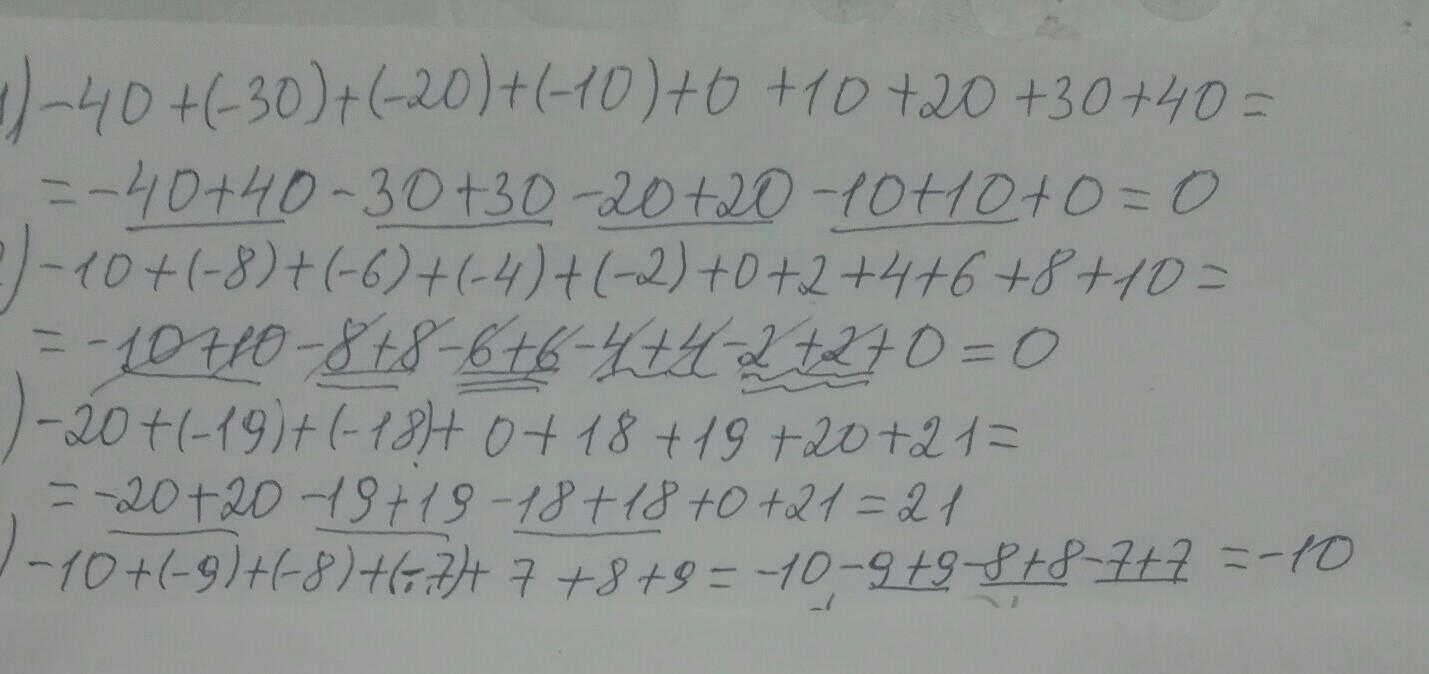 1) -40+(-30)+(-20)+(-10)+0+10+20+30+40=
=-40+40-30+30-20+20-10+10+0=0
) -10+(-8)+(-6)+(-4)+(-2)+0+2+4+6+8+10=
=-10+10-8+8-6+6-4+4-2+2+0=0
) -20+(-19)+(-18)+0+18+19+20+21=
=-20+20-19+19-18+18+0+21=21
) -10+(-9)+(-8)+(-7)+7+8+9=-10-9+9-8+8-7+7=-10